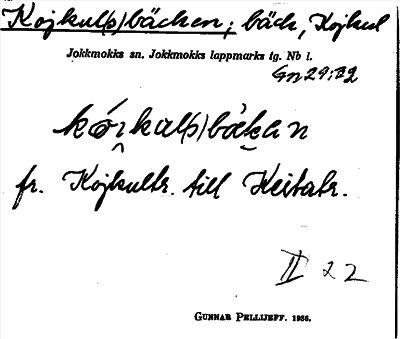 Kojkul(p)bäcken; bäck, Kojkul
Jokkmokks sn, Jokkmokks lappmarks tg. Nb l.
Gn 29:
kói̯kal(p)bäkan
fr. Kojkultr. till Keitatr.
II 22
GUNNAR PELLIJEFF. 1956.